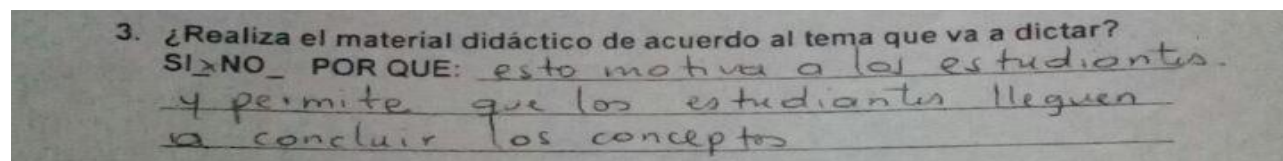 3. ¿Realiza el material didáctico de acuerdo al tema que va a dictar?
SI x NO_ POR QUE: esto motiva a los estudiantes.
y permite que los estudiantes lleguen
a concluir los conceptos